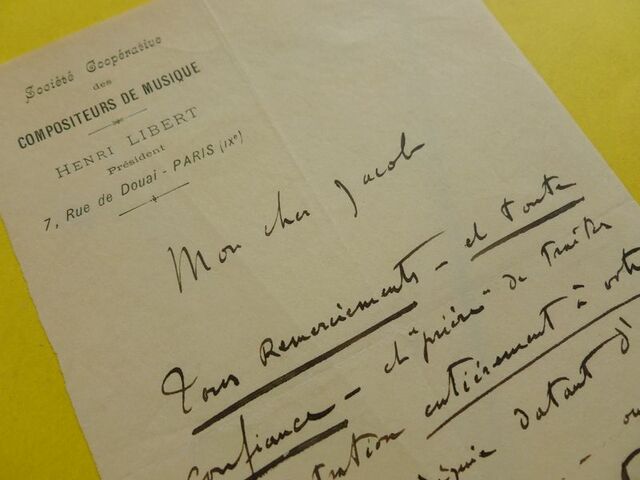 Société Coopérative
des
COMPOSITEURS DE MUSIQUE
HENRI LIBERT
Président
7, Rue de Douai - PARIS (IXe)
Mon cher Jacob
Tous Remerciements - et toute
confiance - et "prière" de traiter
entièrement à votre
datant d'